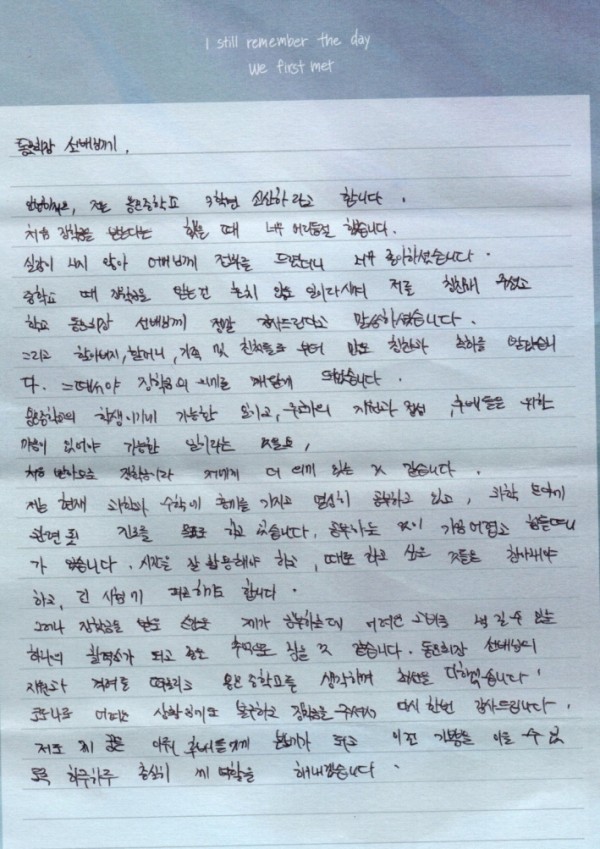 I still remember the day
we first met
동문회장 선배님께,
안녕하세요, 저는 중학교 3학년 라고 합니다.
처음 장학금을 받는다는 했을 때 너무 어리둥절 했습니다.
실감이 나지 않아 어머니께 전화를 드렸더니 너무 좋아하셨습니다.
중학교 때 장학금을 받는건 흔치 않은 일이라시며 저를 칭찬해 주셨고
학교 동문회장 선배님께 정말 감사드린다고 말씀하셨습니다.
그리고 할아버지, 할머니, 가족 및 친척들로 부터 많은 칭찬과 축하를 받았습니
다. 그때서야 장학금의 의미를 깨닫게 되었습니다.
학생이기에 가능한 일이고, 지원과 후배들을 위한
마음이 있어야 가능한 일이라는 것을요,
처음 받아보는 장학금이라 저에게 더 의미 있는 것 같습니다.
저는 현재 과학과 수학에 흥미를 가지고 열심히 공부하고 있고, 과학 분야에
관련된 진로를 목표로 하고 있습니다. 공부하는 것이 가끔 어렵고 힘들때
가 있습니다. 시간을 잘 활용해야 하고, 때론 하고 싶은 것들을 참아내야
하고, 긴 시험기 하기도 합니다.
그러나 장학금을 받은 것은 제가 공부하는데 어려운 고비를 넘길 수 있는
하나의 활력소가 되고 좋은 추억으로 남을 것 같습니다. 동문회장 선배님의
지원과 격려를 떠올리고 중학교를 생각하며 최선을 다하겠습니다!
코로나로 어려운 상황임에도 불구하고 장학금을 주셔서 다시 한번 감사드립니다.
저도 제 꿈을 이뤄 후배들에게 본보기가 되고 이런 기쁨을 이을 수 있
도록 하루하루 충실히 제 역할을 해내겠습니다.